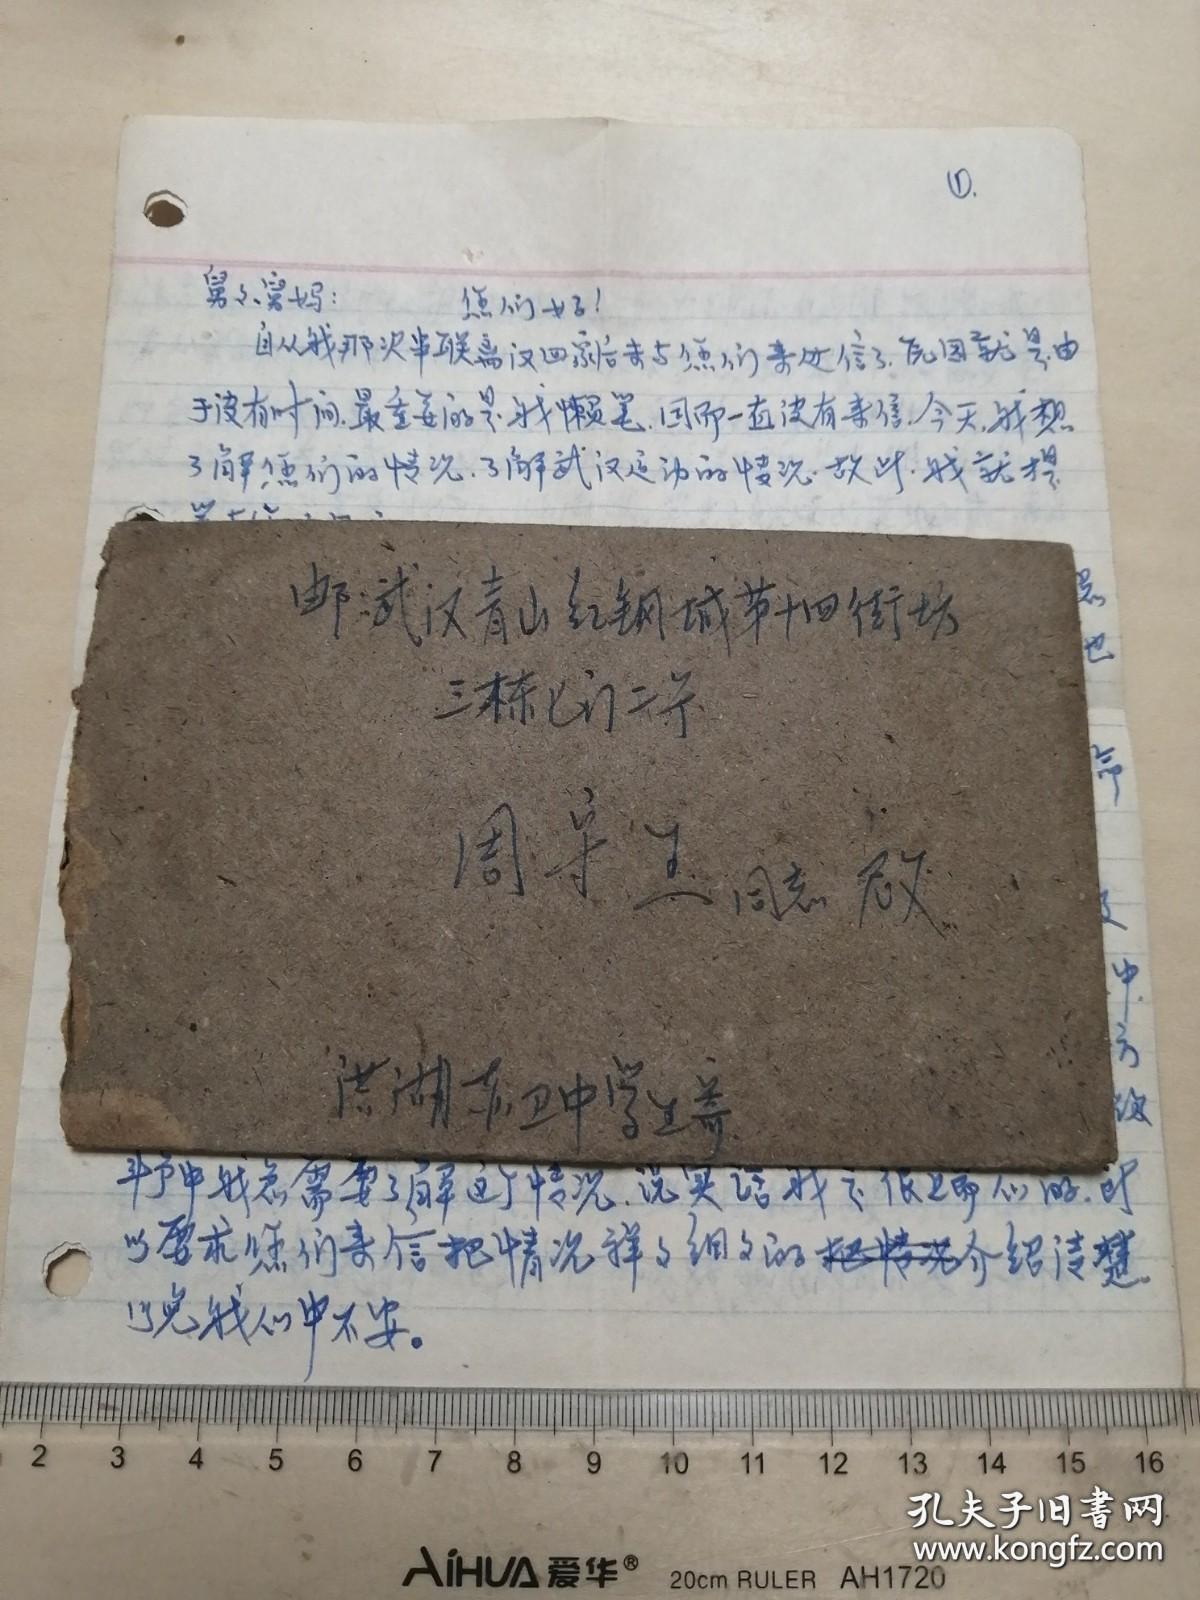 ①.
舅舅、舅妈： 您们好！
自从我那次串联离汉回家后未与您们来过信了、原因就是由
于没有时间、最重要的是我懒笔、因而一直没有来信、今天、我想
了解您们的情况、了解武汉运动的情况、故此、我就提
邮：武汉青山红钢城第十四街坊
三栋七门二号
周 生 同志 启
洪湖 卫中学
也
命
中
方
我 需要了解这个情况、说实话我
以要求您们来信把情况祥々细々的把情况介绍清楚
以免我心中不安。
2 3 4 5 6 7 8 9 10 11 12 13 14 15 16
AiHUA 爱华® 20cm RULER AH1720
孔夫子旧书网
www.kongfz.com